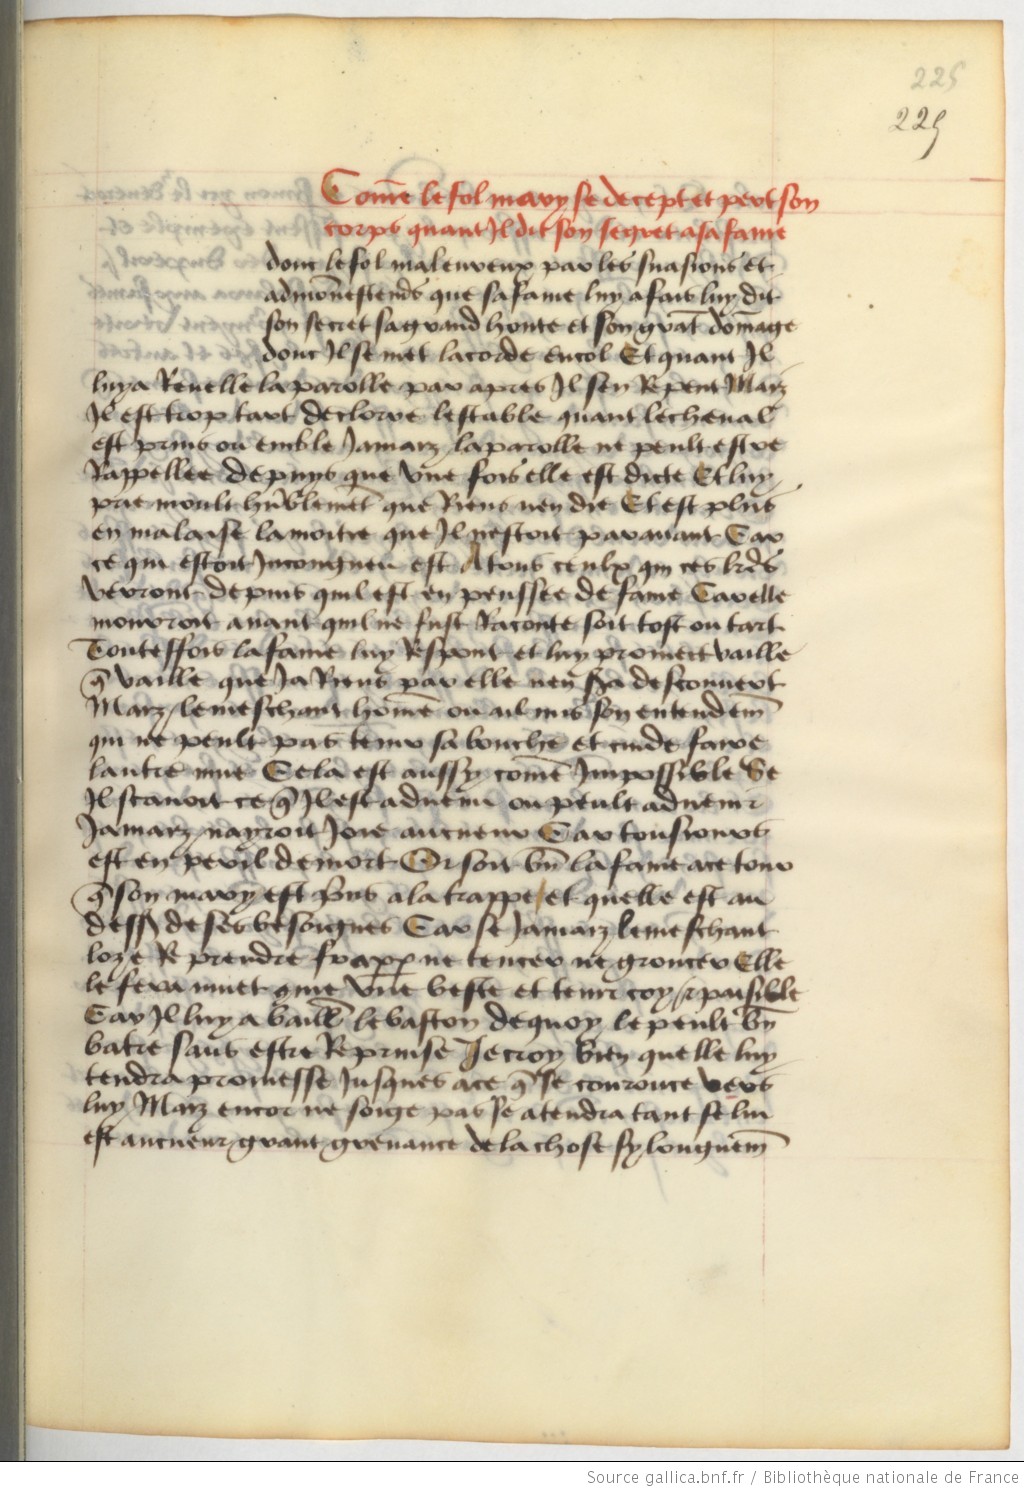 225
225
Com̄e le fol mary se deceptet pert son
corps quant Il dit son segret a sa fame
donc le fol maleureux par les suasions et
admon̄estends que sa fame luy a fais luy dit
son secret sa grand honte et son grāt dom̄age
donc Il se met la corde en col Et quant Il
luy a Reuelle la parolle par apres Il sen Repent Maiz
Il est trop tart de clorre lestable quant le cheual
est prins ou emble Jamaiz la parolle ne peult estre
Rappellee depuys que vne fois elle est dicte Et luy
prie moult hūblemēt que Riens nen die Et est plus
en malaise la moitie que Il nestoit parauant Car
ce qui estoit Incongneu est A tous ceulx qui ces lr̄es
verront depuis quil est en penssee de fame Car elle
mourroit auant quil ne fust Raconte soit tost ou tart
Touteffois la fame luy Respont et luy promect vaille
q̄ vaille que Ja Riens par elle nen sera descouuert
Maiz le meschant hom̄e ou a il mis son entendem̄
qui ne peult pas tenir sa bouche et cuide faire
lautre mue Cela est aussy com̄e Impossible Se
Il scauoit ce q̄ Il est aduenu ou peult aduenir
Jamaiz nayroit Joie au cueur Car tousiours
est en peril de mort Or soit bn̄ la fame a ce tour
q̄ son mary est p̄ns a la trappe et quelle est au
dess9 de ses besoignes Car se Jamaiz le meschant
loze Reprendre frapp̄ ne tencer ne groucer Elle
le fera muet q̄me vne beste et tenir coy & paisible
Car Il luy a baill̄ le baston de quoy le peult bn̄
batre sans estre Reprinse Je croy bien quelle luy
tendra promesse Jusques a ce q̄ se courouce vers
luy Maiz encor ne soige pas se atendra tant se lui
est au cueur grant greuance de la chose sy longuem̄
Source gallica.bnf.fr / Bibliothèque nationale de France